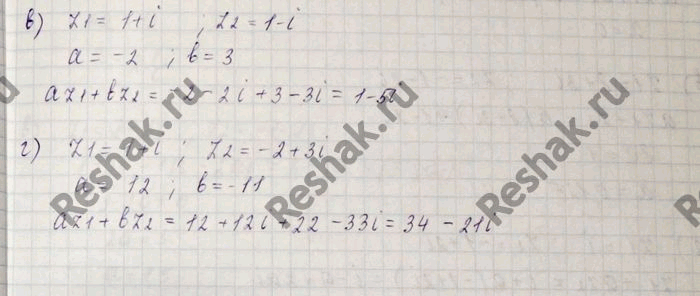 в) z1 = 1+i ; z2 = 1-i
a = -2 ; b = 3
az1 + bz2 = -2 - 2i + 3 - 3i = 1 - 5i
г) z1 = 1+i ; z2 = -2 + 3i
a = 12 ; b = -11
az1 + bz2 = 12 + 12i + 22 - 33i = 34 - 21i
Reshak.ru
Reshak.ru
Reshak.ru